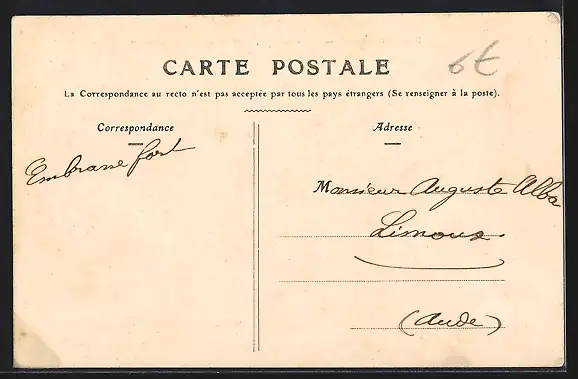 CARTE POSTALE
6€
La Correspondance au recto n'est pas acceptée par tous les pays étrangers (Se renseigner à la poste).
Correspondance
Adresse
Embrasse fort
Monsieur Auguste Alba
Limoux.
(Aude)